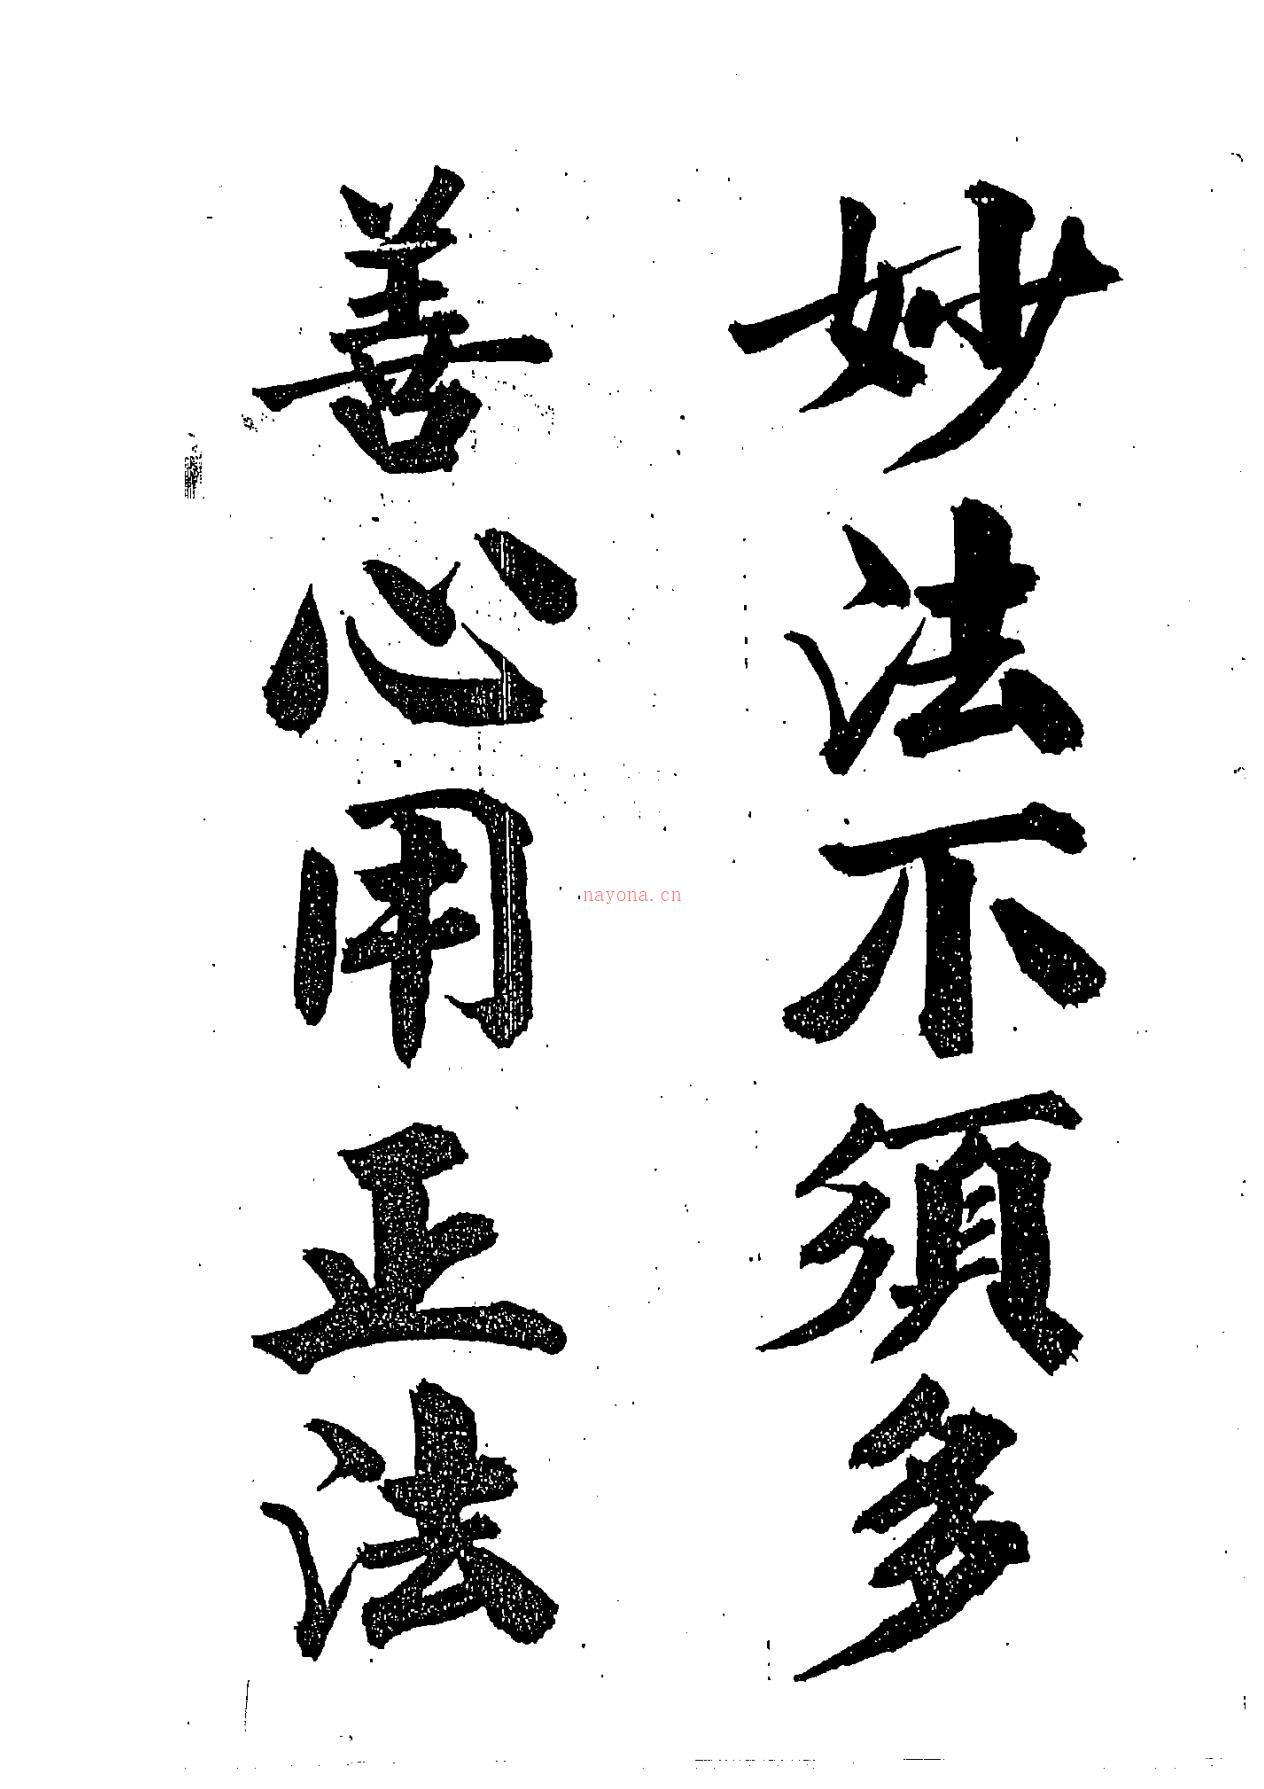 妙法不須多
善心用正法
nayona.cn